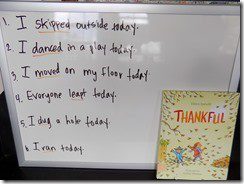 1. I skipped outside today.
2. I danced in a play today.
3. I moved on my floor today.
4. Everyone leapt today.
5. I dug a hole today.
6. I ran today.
THANKFUL